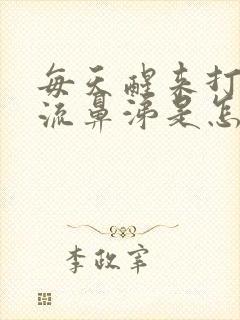 每天醒来打
流鼻涕是怎
李政宰